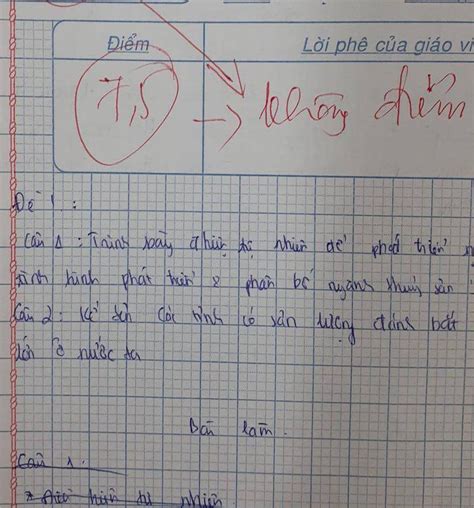 Điểm
Lời phê của giáo vi
7,5
→ không điểm
Đề 1:
Câu 1: Trình bày điều kiện tự nhiên để phát triển
tình hình phát triển & phân bố ngành thuỷ sản
Câu 2: Kể tên các tỉnh có sản lượng đánh bắt
lớn ở nước ta
Bài làm.
Câu 1.
* Điều kiện tự nhiên